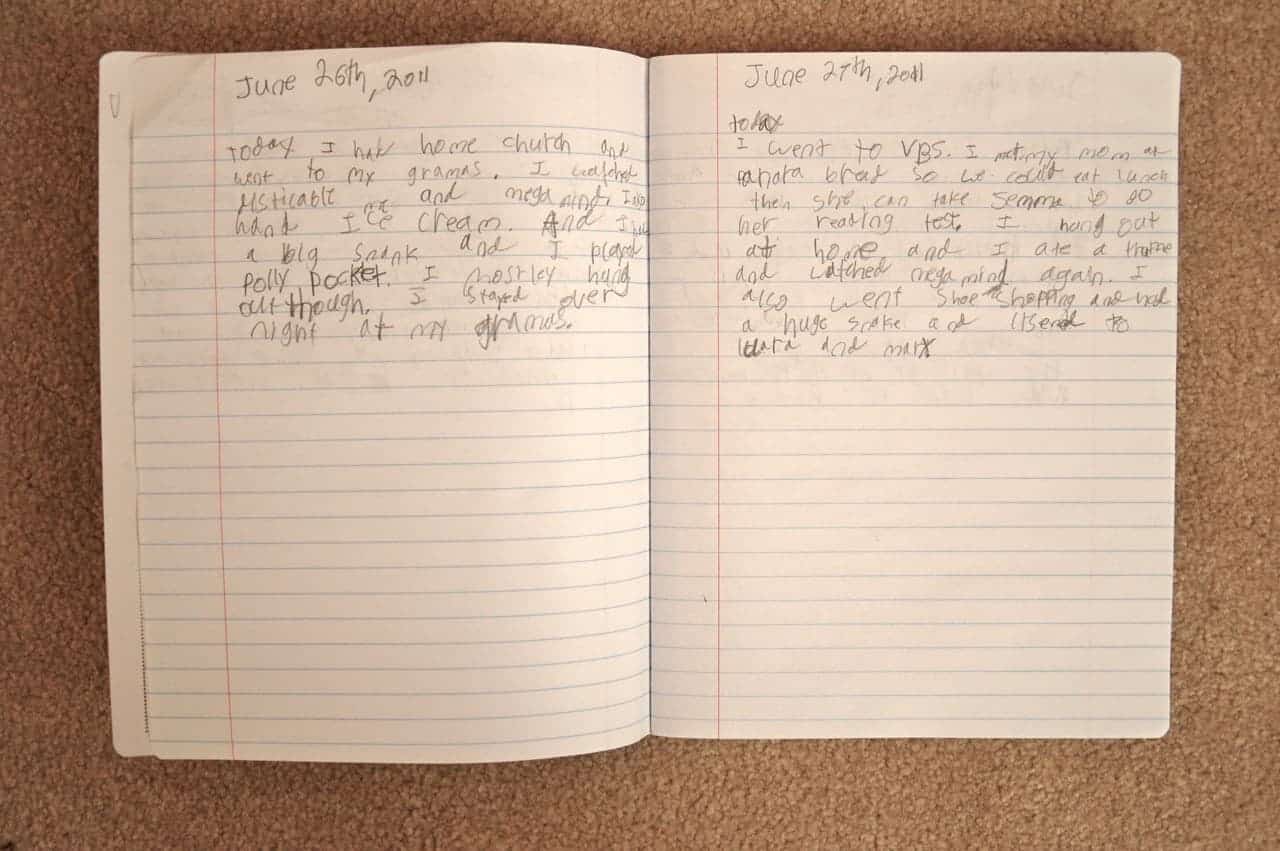 June 26th, 2011
today I had home church and
went to my gramas. I watched
and mega mind. I also
hand Ice cream. And I had
a big snank and I played
polly pocket. I mostley hung
out though. I stayed over
night at my gramas.
June 27th, 2011
today
I went to VBS. I met my mom at
panara bread so we could eat lunch
then she can take to do
her reading test. I hang out
at home and I ate a
and watched mega mind again. I
also went shoe shopping and had
a huge snake and to
and